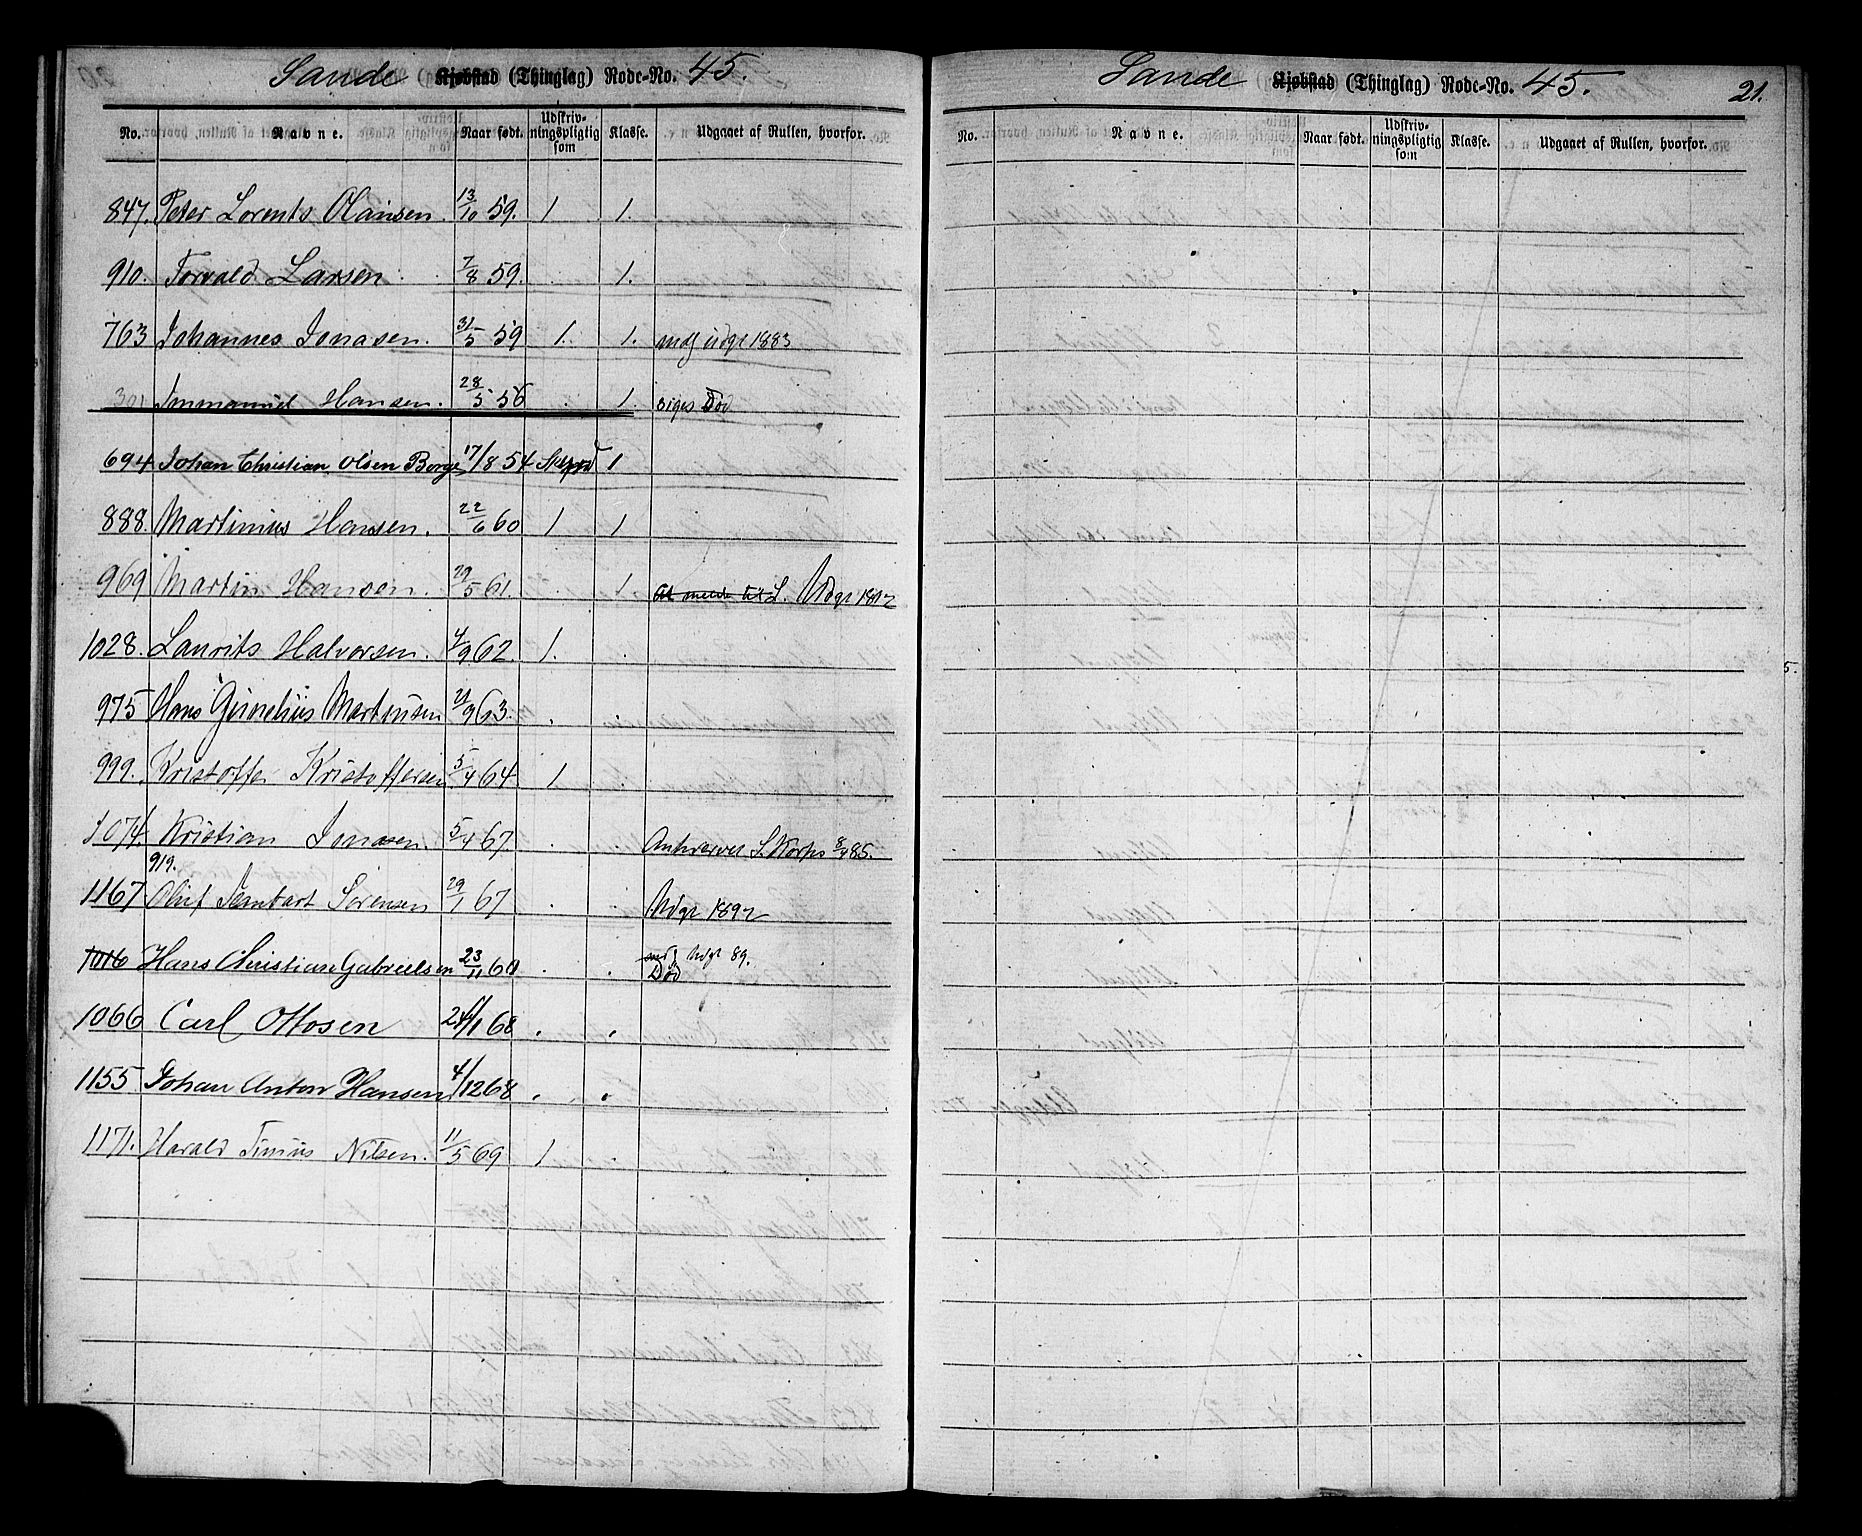 Sande Kjøbstad (Thinglag) Rode-No. 45.
No. Navne. Naar født. Udskrivningspligtig som Klasse. Udgaaet af Rullen, hvorfor.
847. Peter Lorents Olausen. 13/10 59. 1 1.
910. Torvald Larsen 7/8 59. 1.
763 Johannes Jonasen. 31/5 59 1. 1. udgr 1883
301 Immanuel Hansen. 28/5 56 1. siges Død
694 Johan Christian Olsen Borge 17/8 54 1
888. Martinius Hansen. 22/6 60 1 1
969 Martin Hansen. 29/5 61. 1. Udgr 1892
1028. Laurits Halvorsen. 4/9 62. 1.
975 Hans Martinsen 21/9 63.
999. Kristoffer Kristoffersen 5/4 64 1.
1074. Kristian Jonasen. 5/4 67. S. Korps 8/4 85.
919.
1167 Oluf Sørensen 29/1 67 Udgr 1892
1016 Hans Christian Gabrielsen 23/11 60 Udgr 89.
Død
1066 Carl Ottosen 24/1 68
1155 Johan Anton Hansen 4/12 68
1171. Harald Tinius Nilsen. 11/5 69 1
Sande Kjøbstad (Thinglag) Rode-No. 45. 21.
No. Navne. Naar født. Udskrivningspligtig som Klasse. Udgaaet af Rullen, hvorfor.